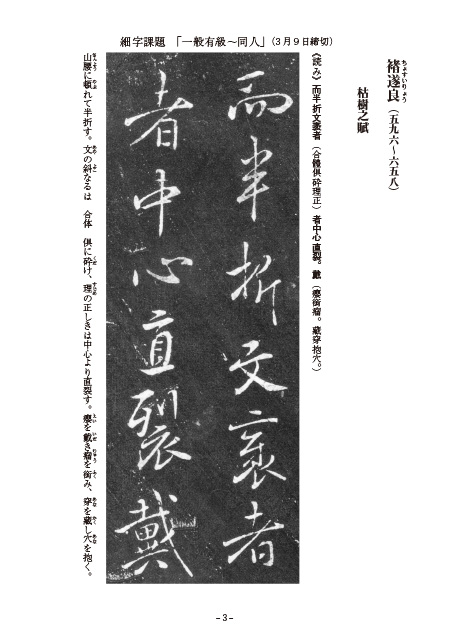 細字課題 「一般有級～同人」（3月9日締切）
褚遂良（五九六～六五八）
ちょすいりょう
枯樹之賦
《読み》而半折文衺者（合體俱碎理正）者中心直裂。戴（癭銜瘤。藏穿抱穴。）
而半折文衺者
者中心直裂戴
山腰に頓れて半折す。文の斜なるは 合体 倶に砕け、理の正しきは中心より直裂す。癭を戴き瘤を銜み、穿を蔵し穴を抱く。
-3-